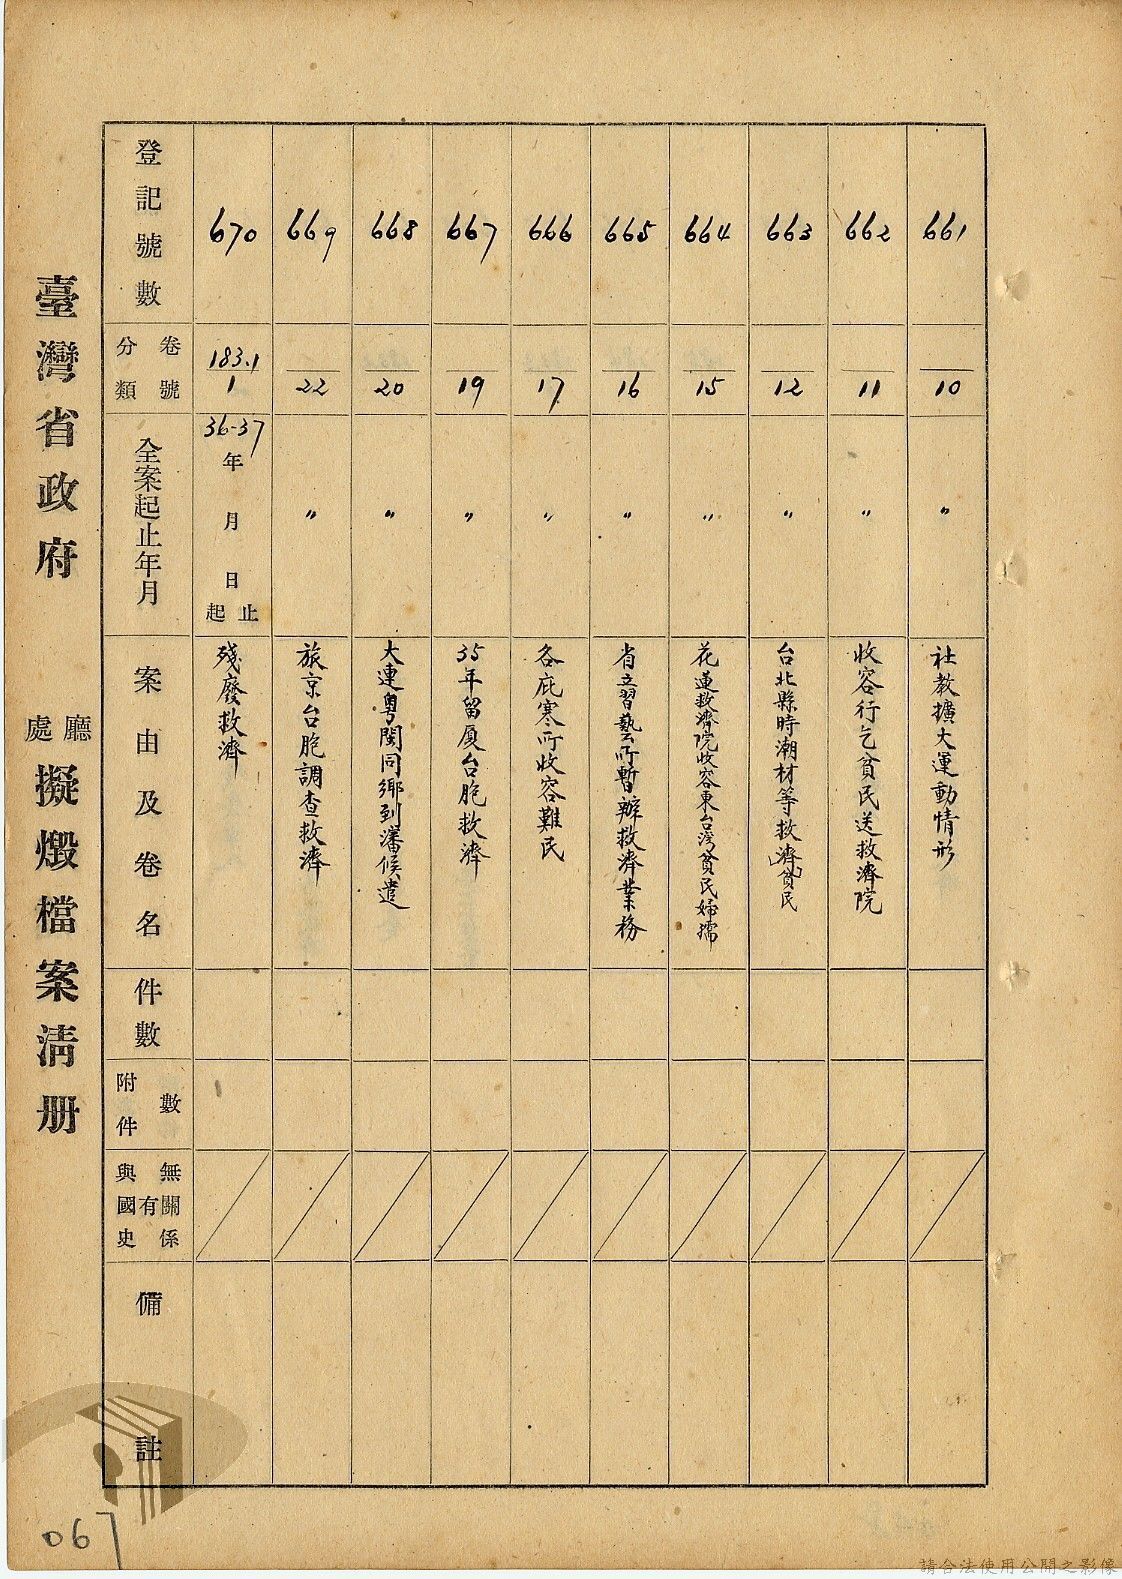 臺灣省政府 廳處 擬燬檔案清册
登記號數
分類 卷號
全案起止年月
案由及卷名
件數
附件 數
與國史 有 無關係
備註
670
183.1
1
36-37
年 月 日 起 止
殘廢救濟
669
22
〃
旅京台胞調查救濟
668
20
〃
大連粵閩同鄉到瀋候遣
667
19
〃
35年留厦台胞救濟
666
17
〃
各庇寒所收容難民
665
16
〃
省立習藝所暫辦救濟業務
664
15
〃
花蓮救濟院收容東台灣貧民婦孺
663
12
〃
台北縣時潮材等救濟貧民
662
11
〃
收容行乞貧民送救濟院
661
10
〃
社教擴大運動情形
067
請合法使用公開之影像